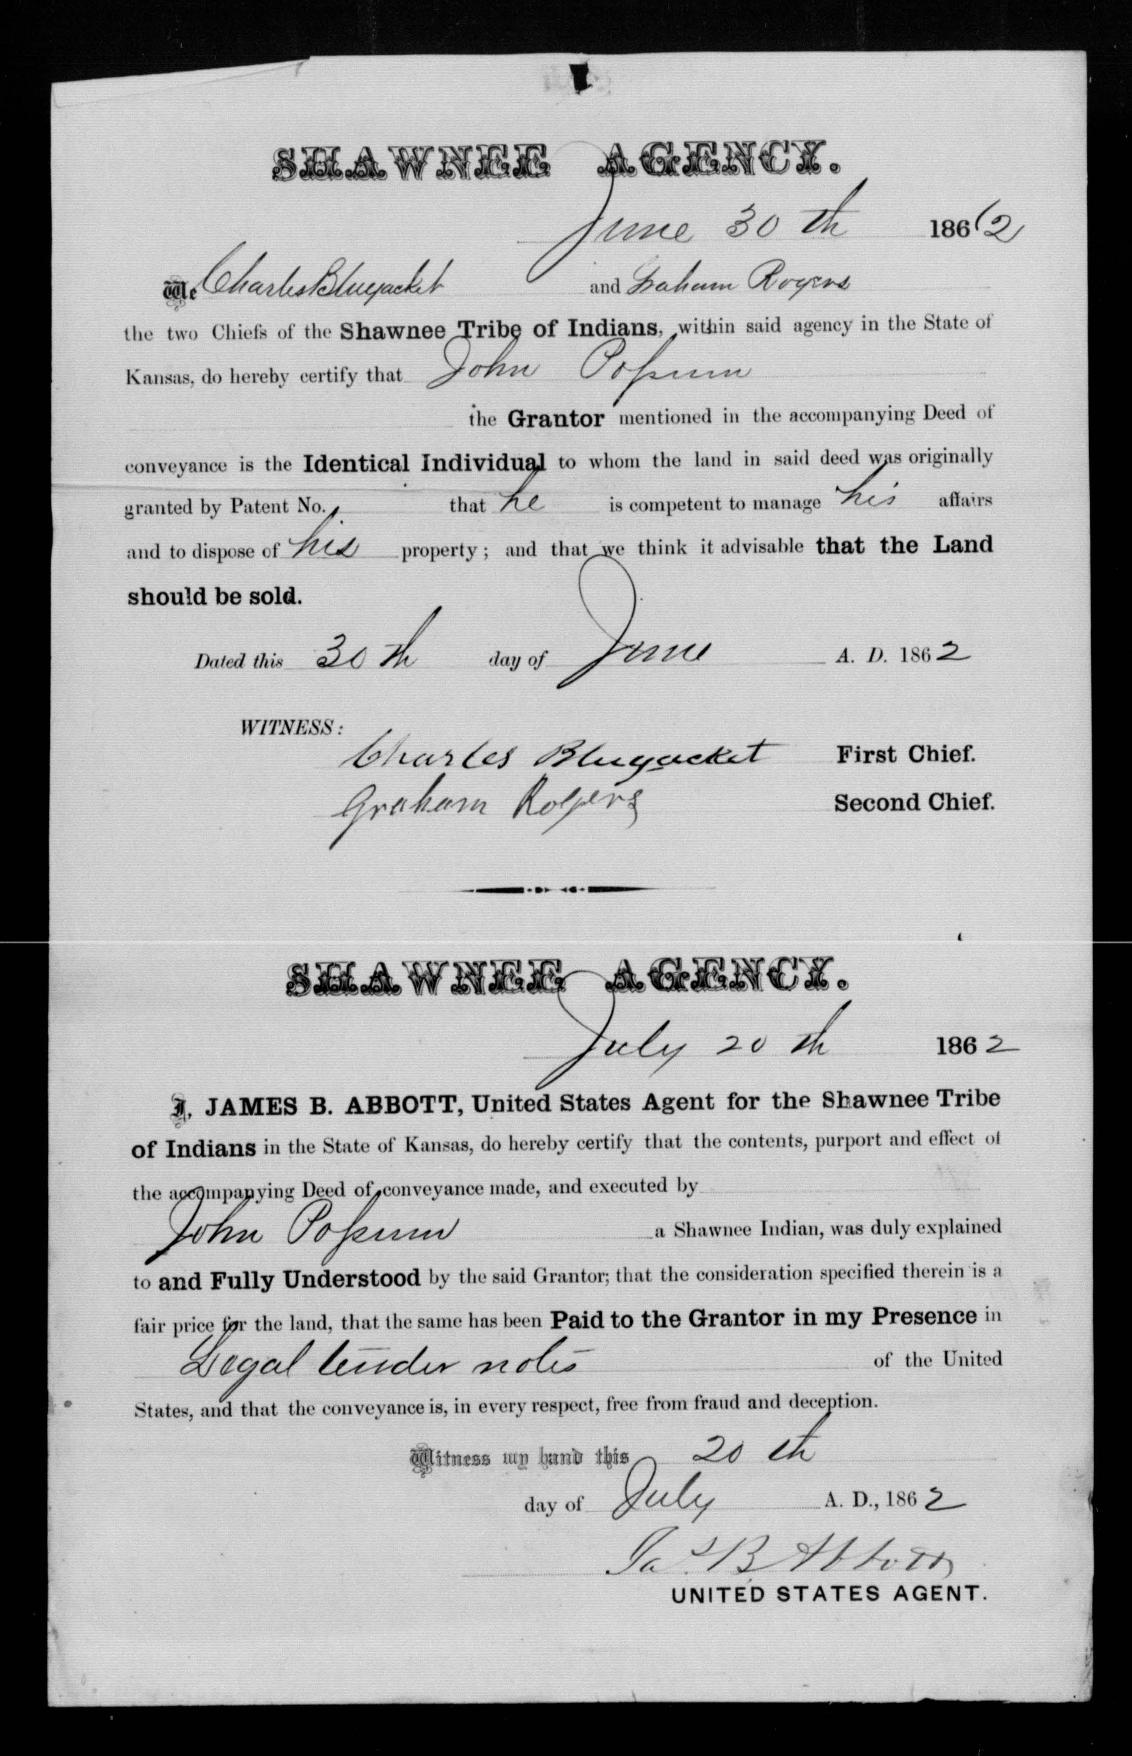 SHAWNEE AGENCY.
June 30th 1862
We Charles Bluejacket and Graham Rogers
the two Chiefs of the Shawnee Tribe of Indians, within said agency in the State of
Kansas, do hereby certify that John Possum
the Grantor mentioned in the accompanying Deed of
conveyance is the Identical Individual to whom the land in said deed was originally
granted by Patent No. that he is competent to manage his affairs
and to dispose of his property; and that we think it advisable that the Land
should be sold.
Dated this 30th day of June A. D. 1862
WITNESS:
Charles Bluejacket First Chief.
Graham Rogers Second Chief.
SHAWNEE AGENCY.
July 20th 1862
I, JAMES B. ABBOTT, United States Agent for the Shawnee Tribe
of Indians in the State of Kansas, do hereby certify that the contents, purport and effect of
the accompanying Deed of conveyance made, and executed by
John Possum a Shawnee Indian, was duly explained
to and Fully Understood by the said Grantor; that the consideration specified therein is a
fair price for the land, that the same has been Paid to the Grantor in my Presence in
Legal tender notes of the United
States, and that the conveyance is, in every respect, free from fraud and deception.
Witness my hand this 20th
day of July A. D., 1862
Jas B Abbott
UNITED STATES AGENT.